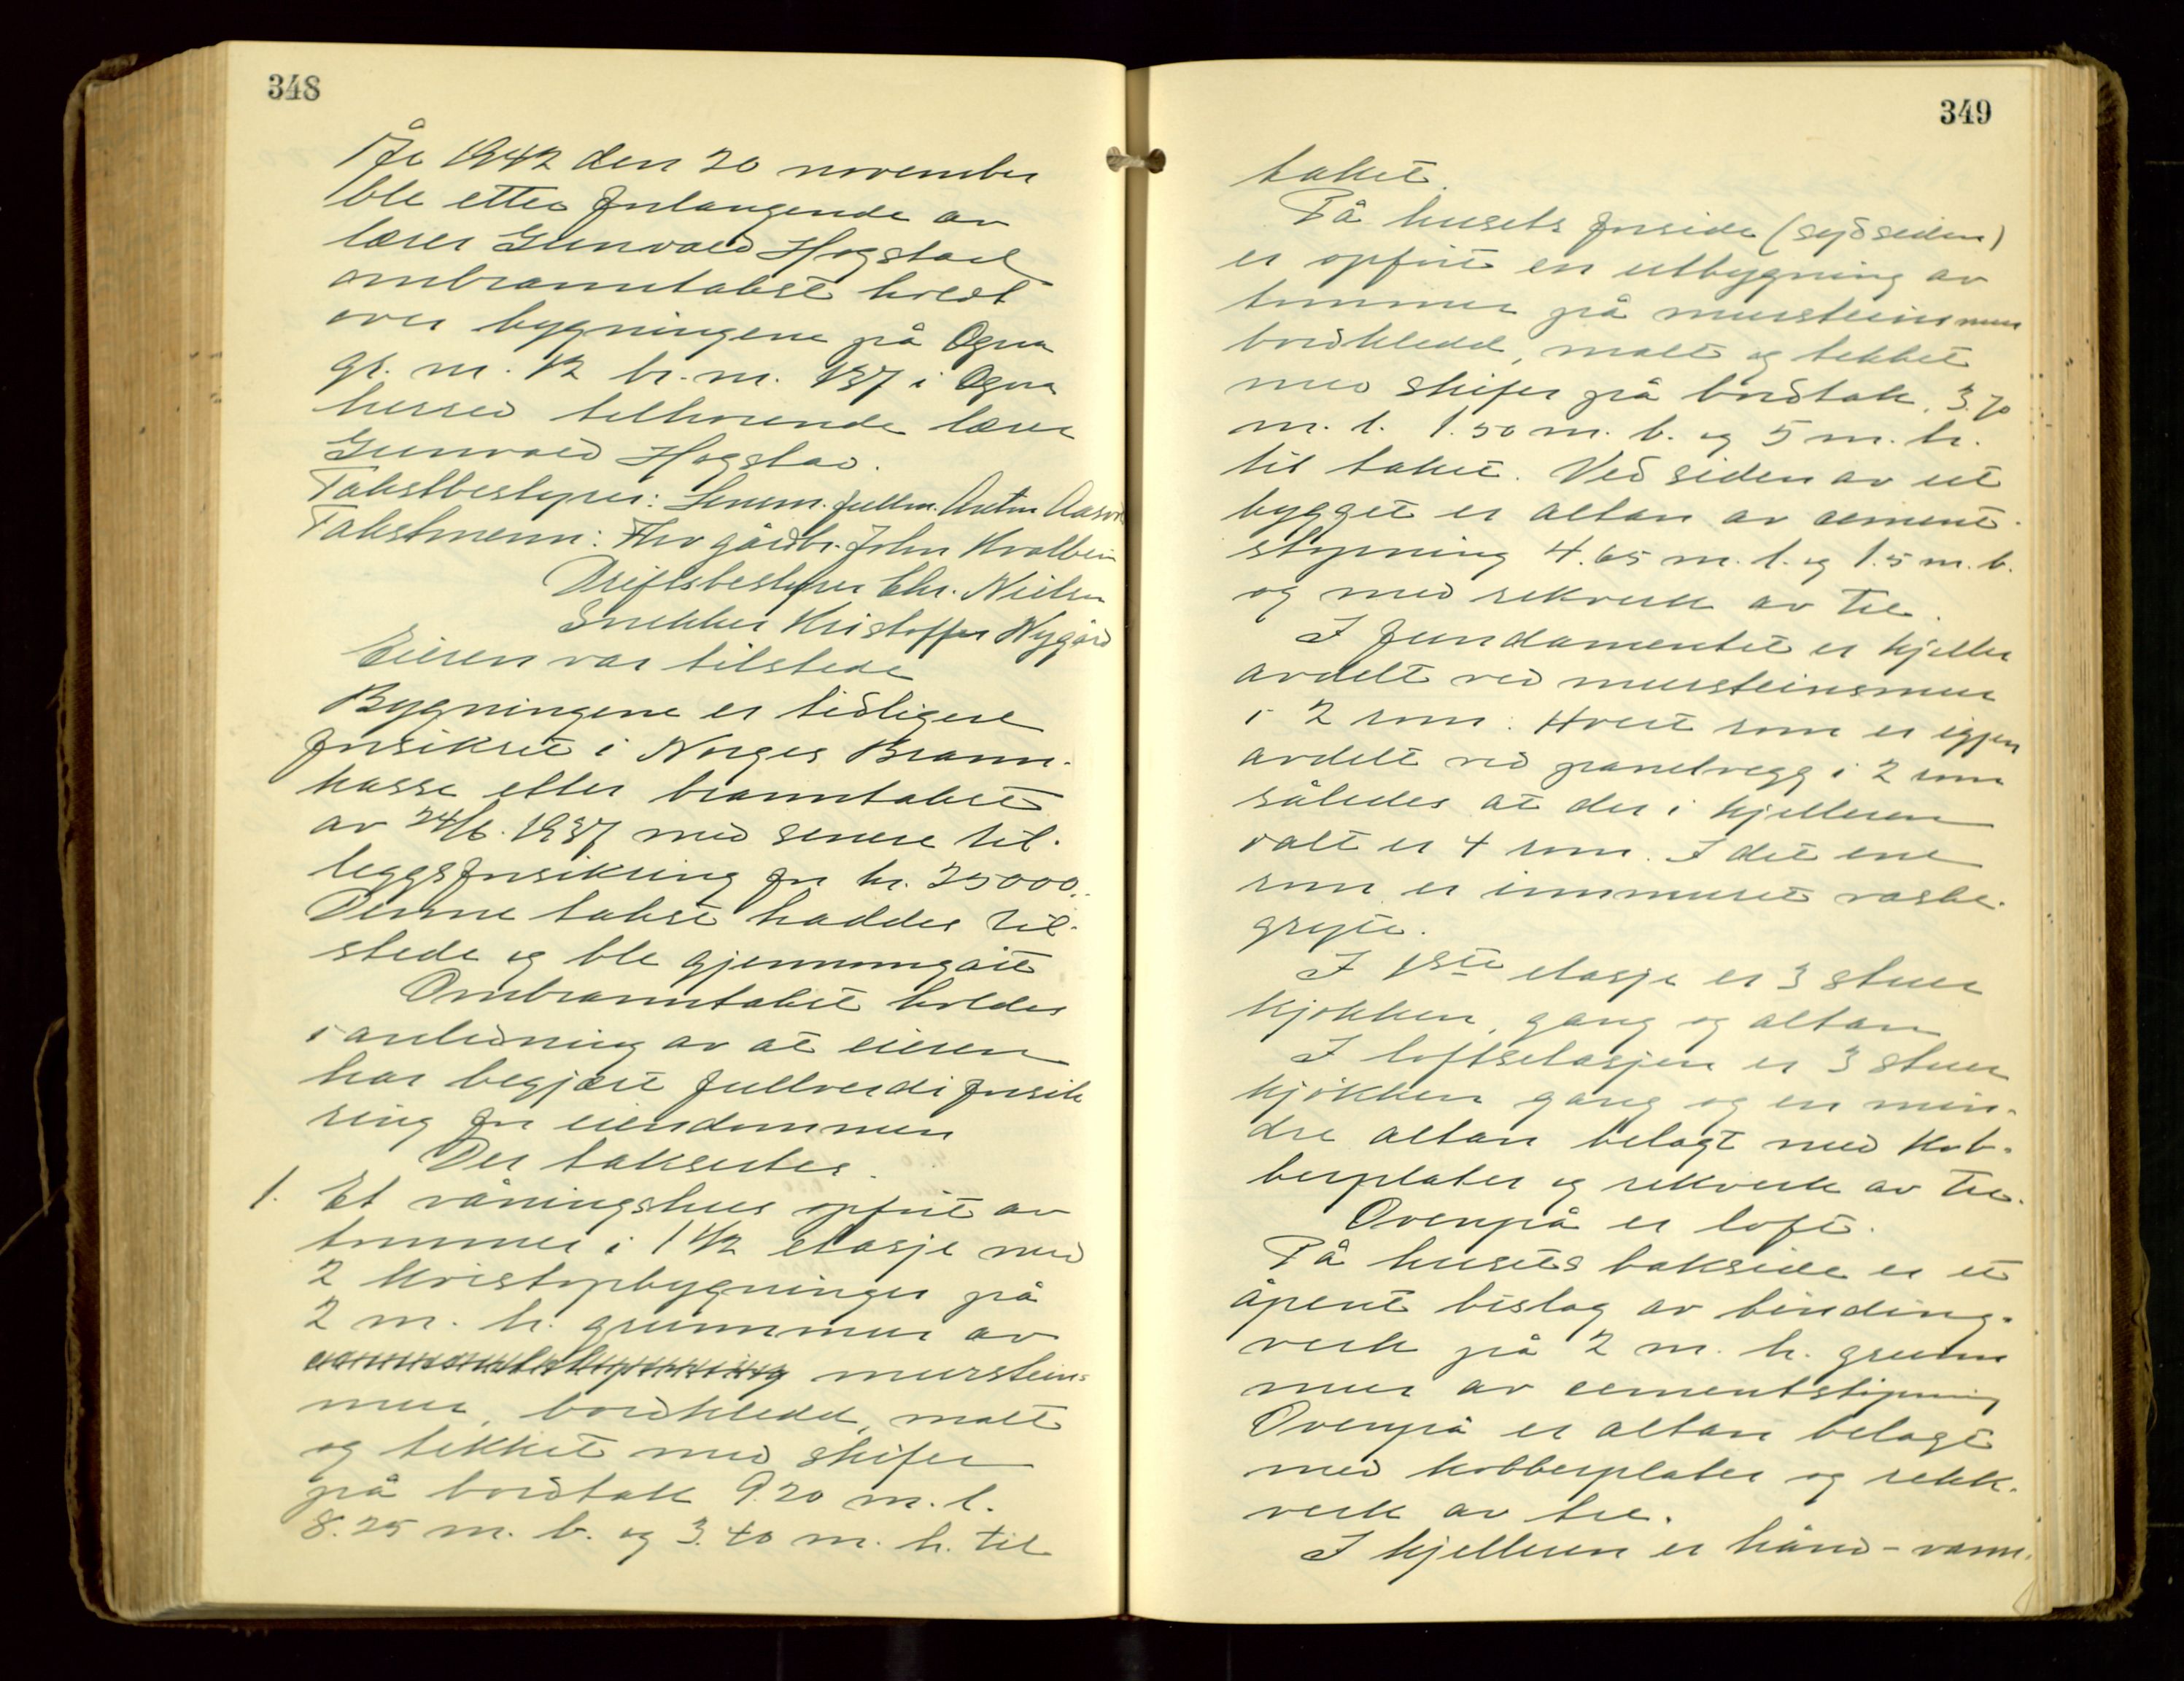 348
År 1942 den 20 november
ble etter forlangende av
lærer Gunvald Hogstad
ombranntakst holdt
over bygningene på Ogna
gr. nr. 12 br. nr. 137 i Ogna
herred tilhørende lærer
Gunvald Hogstad.
Takstbestyrer: Lensm. fullm. Anton Aasvik
Takstmenn: Hrr gårdbr. John Kvalbein
Driftsbestyrer Chr. Nielsen
Snekker Kristoffer Nygård
Eieren var tilstede
Bygningene er tidligere
forsikret i Norges Brann-
kasse etter branntakst
av 24/6. 1937 med senere til-
leggsforsikring for kr. 25000.
Denne takst haddes til-
stede og ble gjennomgått
Ombranntakst holdes
i anledning av at eieren
har begjært fullverdi forsik
ring for eiendommen
Der taksertes.
1. Et våningshus opført av
tømmer i 1 1/2 etasje med
2 kvistopbygninger på
2 m. h. grunnmur av
cementstøpning murstein-
mur, bordkledd, malt
og tekket med skifer
på bordtak 9.20 m. l.
8.25 m. b. og 3.40 m. h. til
349
taket.
På husets forside (sydsiden)
er opført en utbygning av
tømmer på mursteinsmur
bordkledd, malt og tekket
med skifer på bordtak, 3.70
m. l. 1.50 m. b. og 5 m. h.
til taket. Ved siden av ut
bygget er altan av cement-
støpning 4.65 m. l. og 1.5 m. b.
og med rekverk av tre.
I fundamentet er kjeller
avdelt ved mursteinsmur
i 2 rom. Hvert rom er igjen
avdelt ved panelvegg i 2 rom
således at der i kjelleren
ialt er 4 rom. I det ene
rom er innmuret vaske-
gryte.
I 1ste etasje er 3 stuer
kjøkken, gang og altan
I loftsetasjen er 3 stuer
kjøkken gang og en min-
dre altan belagt med kob-
berplater og rekverk av tre.
Ovenpå er loft.
På husets bakside er et
åpent bislag av binding-
verk på 2 m. h. grunn
mur av cementstøpning
Ovenpå er altan belagt
med kobberplater og rekk-
verk av tre.
I kjelleren er hånd-vann-